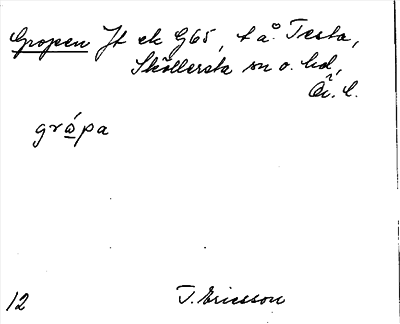 Gropen Jt ek G65, t å. Testa,
Sköllersta sn o. hd,
Ör. l.
gròpa
12
T. Ericsson